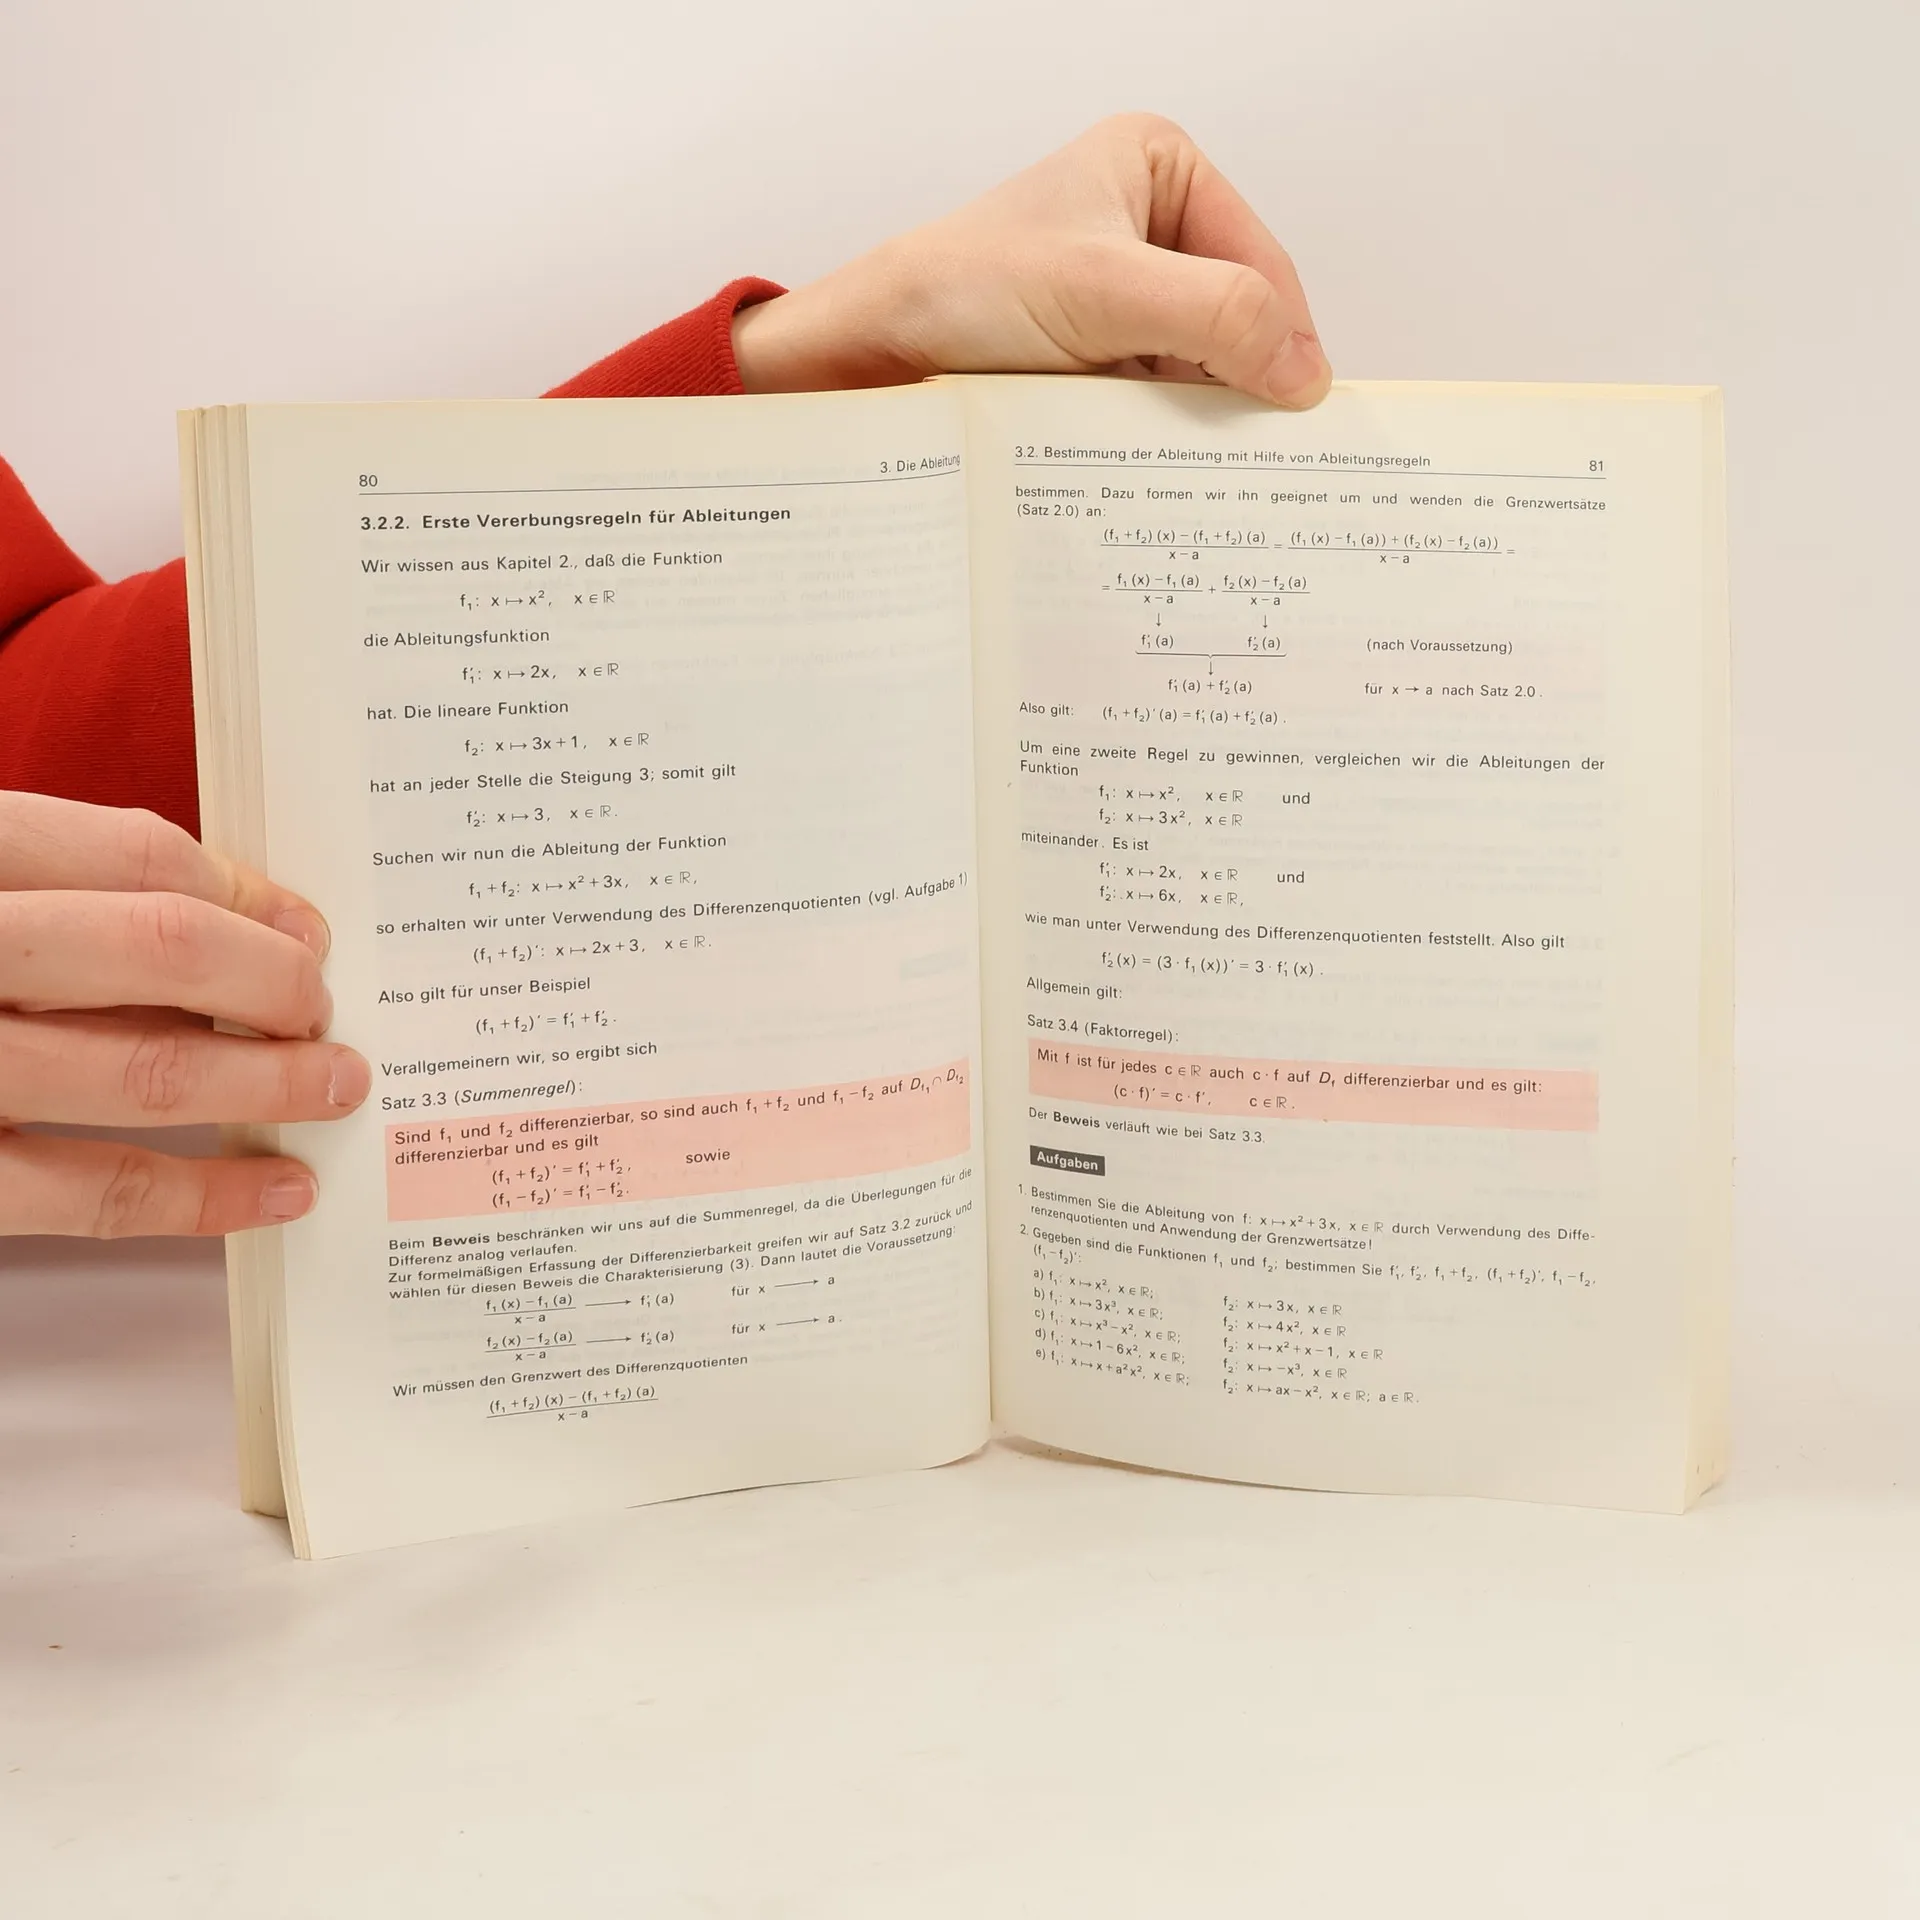 80
3. Die Ableitung
3.2.2. Erste Vererbungsregeln für Ableitungen
Wir wissen aus Kapitel 2., daß die Funktion
f₁: x ↦ x², x ∈ ℝ
die Ableitungsfunktion
f₁′: x ↦ 2x, x ∈ ℝ
hat. Die lineare Funktion
f₂: x ↦ 3x + 1, x ∈ ℝ
hat an jeder Stelle die Steigung 3; somit gilt
f₂′: x ↦ 3, x ∈ ℝ.
Suchen wir nun die Ableitung der Funktion
f₁ + f₂: x ↦ x² + 3x, x ∈ ℝ,
so erhalten wir unter Verwendung des Differenzenquotienten (vgl. Aufgabe 1)
(f₁ + f₂)′: x ↦ 2x + 3, x ∈ ℝ.
Also gilt für unser Beispiel
(f₁ + f₂)′ = f₁′ + f₂′.
Verallgemeinern wir, so ergibt sich
Satz 3.3 (Summenregel):
Sind f₁ und f₂ differenzierbar, so sind auch f₁ + f₂ und f₁ − f₂ auf D_f₁ ∩ D_f₂
differenzierbar und es gilt
(f₁ + f₂)′ = f₁′ + f₂′, sowie
(f₁ − f₂)′ = f₁′ − f₂′.
Beim Beweis beschränken wir uns auf die Summenregel, da die Überlegungen für die
Differenz analog verlaufen.
Zur formelmäßigen Erfassung der Differenzierbarkeit greifen wir auf Satz 3.2 zurück und
wählen für diesen Beweis die Charakterisierung (3). Dann lautet die Voraussetzung:
(f₁(x) − f₁(a))/(x − a) ⟶ f₁′(a) für x ⟶ a
(f₂(x) − f₂(a))/(x − a) ⟶ f₂′(a) für x ⟶ a.
Wir müssen den Grenzwert des Differenzquotienten
((f₁ + f₂)(x) − (f₁ + f₂)(a))/(x − a)
3.2. Bestimmung der Ableitung mit Hilfe von Ableitungsregeln
81
bestimmen. Dazu formen wir ihn geeignet um und wenden die Grenzwertsätze
(Satz 2.0) an:
((f₁ + f₂)(x) − (f₁ + f₂)(a))/(x − a) = ((f₁(x) − f₁(a)) + (f₂(x) − f₂(a)))/(x − a) =
= (f₁(x) − f₁(a))/(x − a) + (f₂(x) − f₂(a))/(x − a)
↓ ↓
f₁′(a) f₂′(a) (nach Voraussetzung)
↓
f₁′(a) + f₂′(a) für x → a nach Satz 2.0.
Also gilt: (f₁ + f₂)′(a) = f₁′(a) + f₂′(a).
Um eine zweite Regel zu gewinnen, vergleichen wir die Ableitungen der
Funktion
f₁: x ↦ x², x ∈ ℝ und
f₂: x ↦ 3x², x ∈ ℝ
miteinander. Es ist
f₁′: x ↦ 2x, x ∈ ℝ und
f₂′: x ↦ 6x, x ∈ ℝ,
wie man unter Verwendung des Differenzenquotienten feststellt. Also gilt
f₂′(x) = (3 · f₁(x))′ = 3 · f₁′(x).
Allgemein gilt:
Satz 3.4 (Faktorregel):
Mit f ist für jedes c ∈ ℝ auch c · f auf D_f differenzierbar und es gilt:
(c · f)′ = c · f′, c ∈ ℝ.
Der Beweis verläuft wie bei Satz 3.3.
Aufgaben
1. Bestimmen Sie die Ableitung von f: x ↦ x² + 3x, x ∈ ℝ durch Verwendung des Diffe-
renzenquotienten und Anwendung der Grenzwertsätze!
2. Gegeben sind die Funktionen f₁ und f₂; bestimmen Sie f₁′, f₂′, f₁ + f₂, (f₁ + f₂)′, f₁ − f₂,
(f₁ − f₂)′:
a) f₁: x ↦ x², x ∈ ℝ; f₂: x ↦ 3x, x ∈ ℝ
b) f₁: x ↦ 3x³, x ∈ ℝ; f₂: x ↦ 4x², x ∈ ℝ
c) f₁: x ↦ x³ − x², x ∈ ℝ; f₂: x ↦ x² + x − 1, x ∈ ℝ
d) f₁: x ↦ 1 − 6x², x ∈ ℝ; f₂: x ↦ −x³, x ∈ ℝ
e) f₁: x ↦ x + a²x², x ∈ ℝ; f₂: x ↦ ax − x², x ∈ ℝ; a ∈ ℝ.